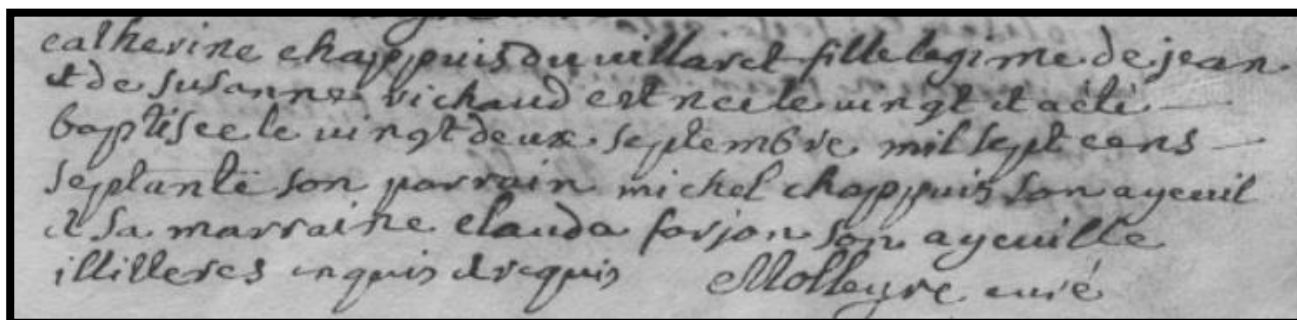 catherine chappuis du villaret fille legime de jean
et de susanne vichaud est nee le vingt et a été
baptisee le vingt deux septembre mil sept cens
septante son parrain michel chappuis son ayeuil
et sa marraine clauda forjon son ayeuille
illiteres enquis et requis Molleyre curé